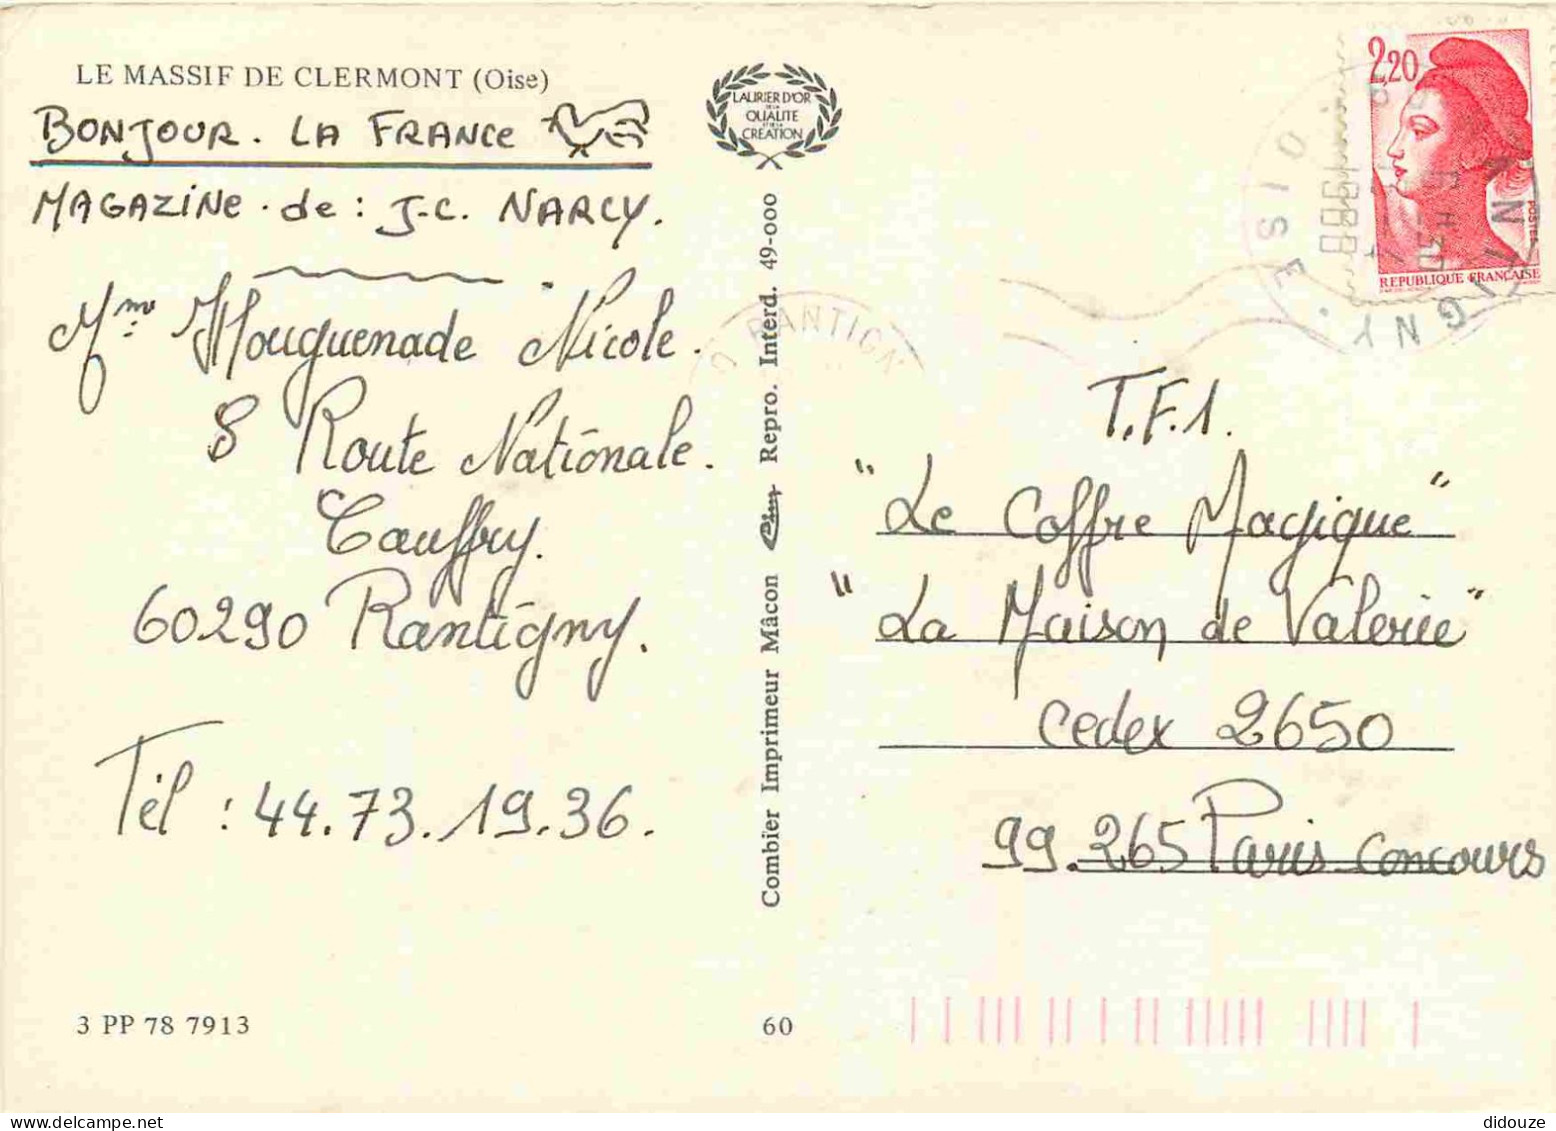 LE MASSIF DE CLERMONT (Oise)
BONJOUR. LA FRANCE
MAGAZINE. de: J-C. NARCY.
Mme Houguenade Nicole.
8 Route Nationale.
Cauffry.
60290 Rantigny.
Tél : 44.73.19.36.
3 PP 78 7913
LAURIER D'OR
DE LA
QUALITÉ
ET DE LA
CRÉATION
Combier Imprimeur Mâcon Repro. Interd. 49-000
60
RANTIGN
2,20
POSTES
REPUBLIQUE FRANÇAISE
RANTIGNY. OISE
1988
T.F.1.
"Le Coffre Magique"
"La Maison de Valérie"
Cedex 2650
99.265 Paris Concours
didouze